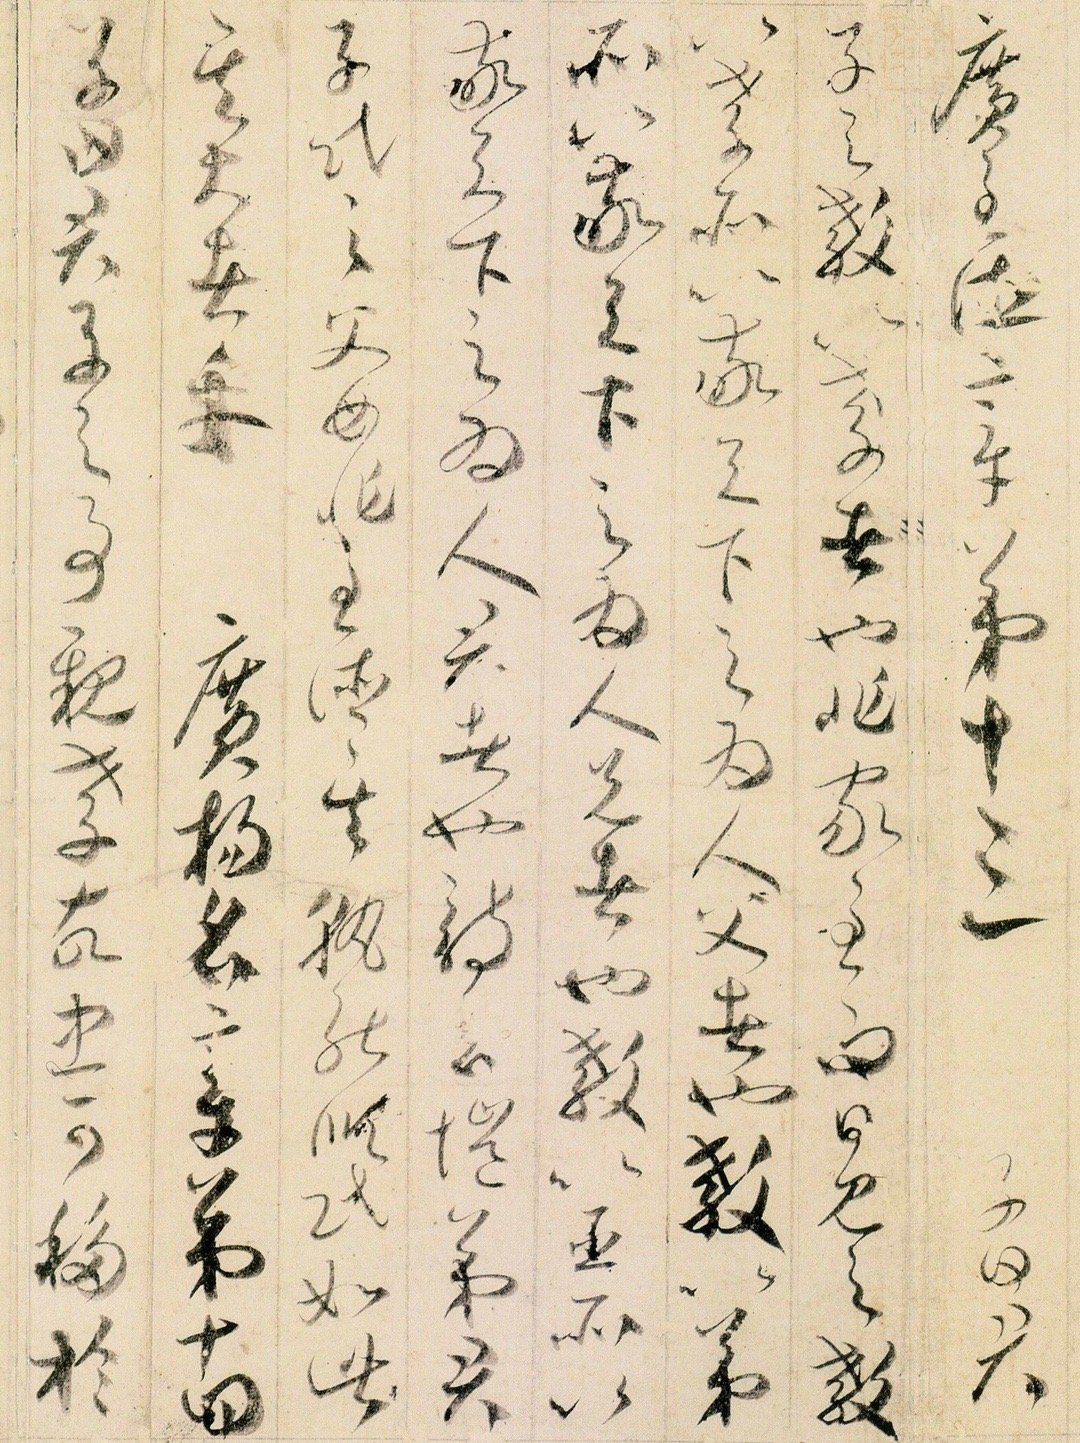 廣至德章第十三 子曰君
子之教以孝者也非家至而日見之教
以孝所以敬天下之為人父者也教以弟
所以敬天下之為人兄者也教以臣所以
敬天下之為人君者也詩云愷弟君
子民之父母非至德其孰能順民如此
其大者乎 廣揚名章第十四
子曰君子之事親孝故忠可移於